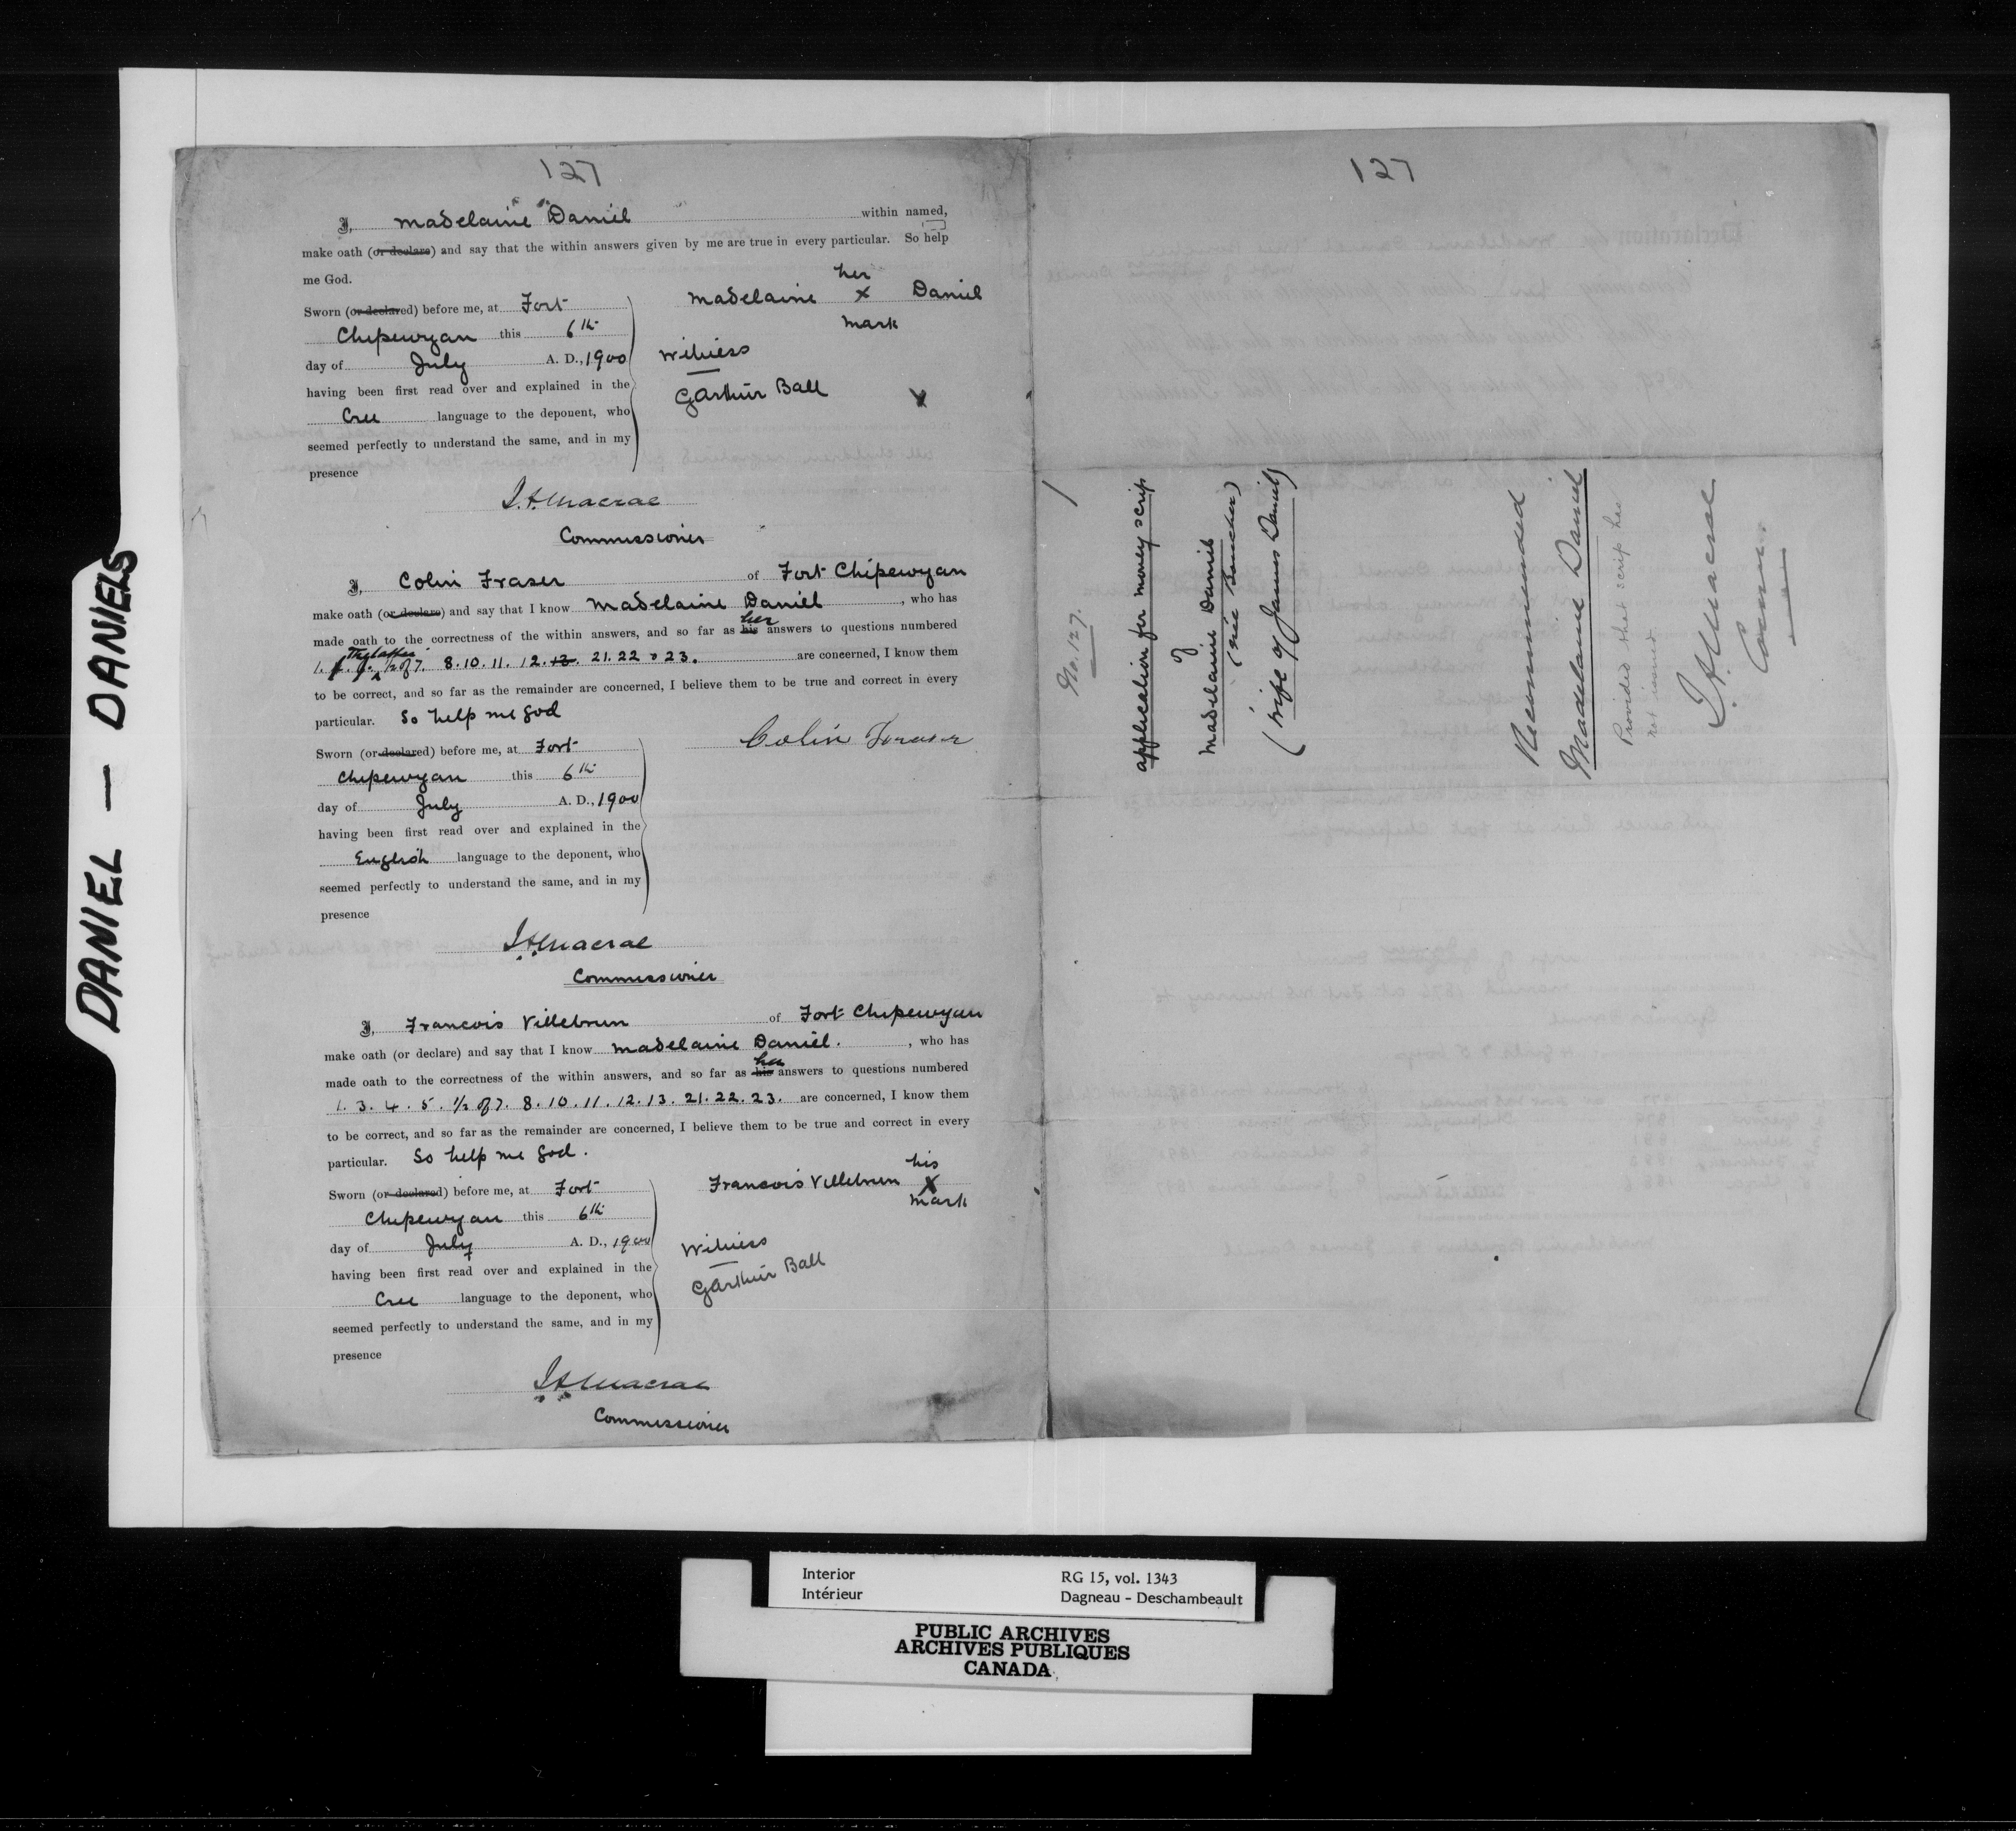 DANIEL — DANIELS
127
I, Madelaine Daniel within named,
make oath (or declare) and say that the within answers given by me are true in every particular. So help
me God.
Sworn (or declared) before me, at Fort
Chipewyan this 6th
day of July A. D., 1900
having been first read over and explained in the
Cree language to the deponent, who
seemed perfectly to understand the same, and in my
presence
her
Madelaine x Daniel
mark
Witness
GArthur Ball
J.A. Macrae
Commissioner
I, Colin Fraser of Fort Chipewyan
make oath (or declare) and say that I know Madelaine Daniel, who has
made oath to the correctness of the within answers, and so far as his her answers to questions numbered
1. The latter ½ of 7. 8. 10. 11. 12. 13. 21. 22 & 23. are concerned, I know them
to be correct, and so far as the remainder are concerned, I believe them to be true and correct in every
particular. So help me God
Sworn (or declared) before me, at Fort
Chipewyan this 6th
day of July A. D., 1900
having been first read over and explained in the
English language to the deponent, who
seemed perfectly to understand the same, and in my
presence
Colin Fraser
J.A. Macrae
Commissioner
I, Francois Villebrun of Fort Chipewyan
make oath (or declare) and say that I know Madelaine Daniel. , who has
made oath to the correctness of the within answers, and so far as his her answers to questions numbered
1. 3. 4. 5. ½ of 7. 8. 10. 11. 12. 13. 21. 22. 23. are concerned, I know them
to be correct, and so far as the remainder are concerned, I believe them to be true and correct in every
particular. So help me God.
Sworn (or declared) before me, at Fort
Chipewyan this 6th
day of July A. D., 1900
having been first read over and explained in the
Cree language to the deponent, who
seemed perfectly to understand the same, and in my
presence
his
Francois Villebrun X
mark
Witness
GArthur Ball
J.A. Macrae
Commissioner
127
No. 127.
application for money scrip
of
Madelaine Daniel
(née )
(wife of James Daniel)
Recommended
Madelaine Daniel
Provided that scrip has
not issued
J.A. Macrae
Comr.
Interior
Intérieur
RG 15, vol. 1343
Dagneau - Deschambeault
PUBLIC ARCHIVES
ARCHIVES PUBLIQUES
CANADA